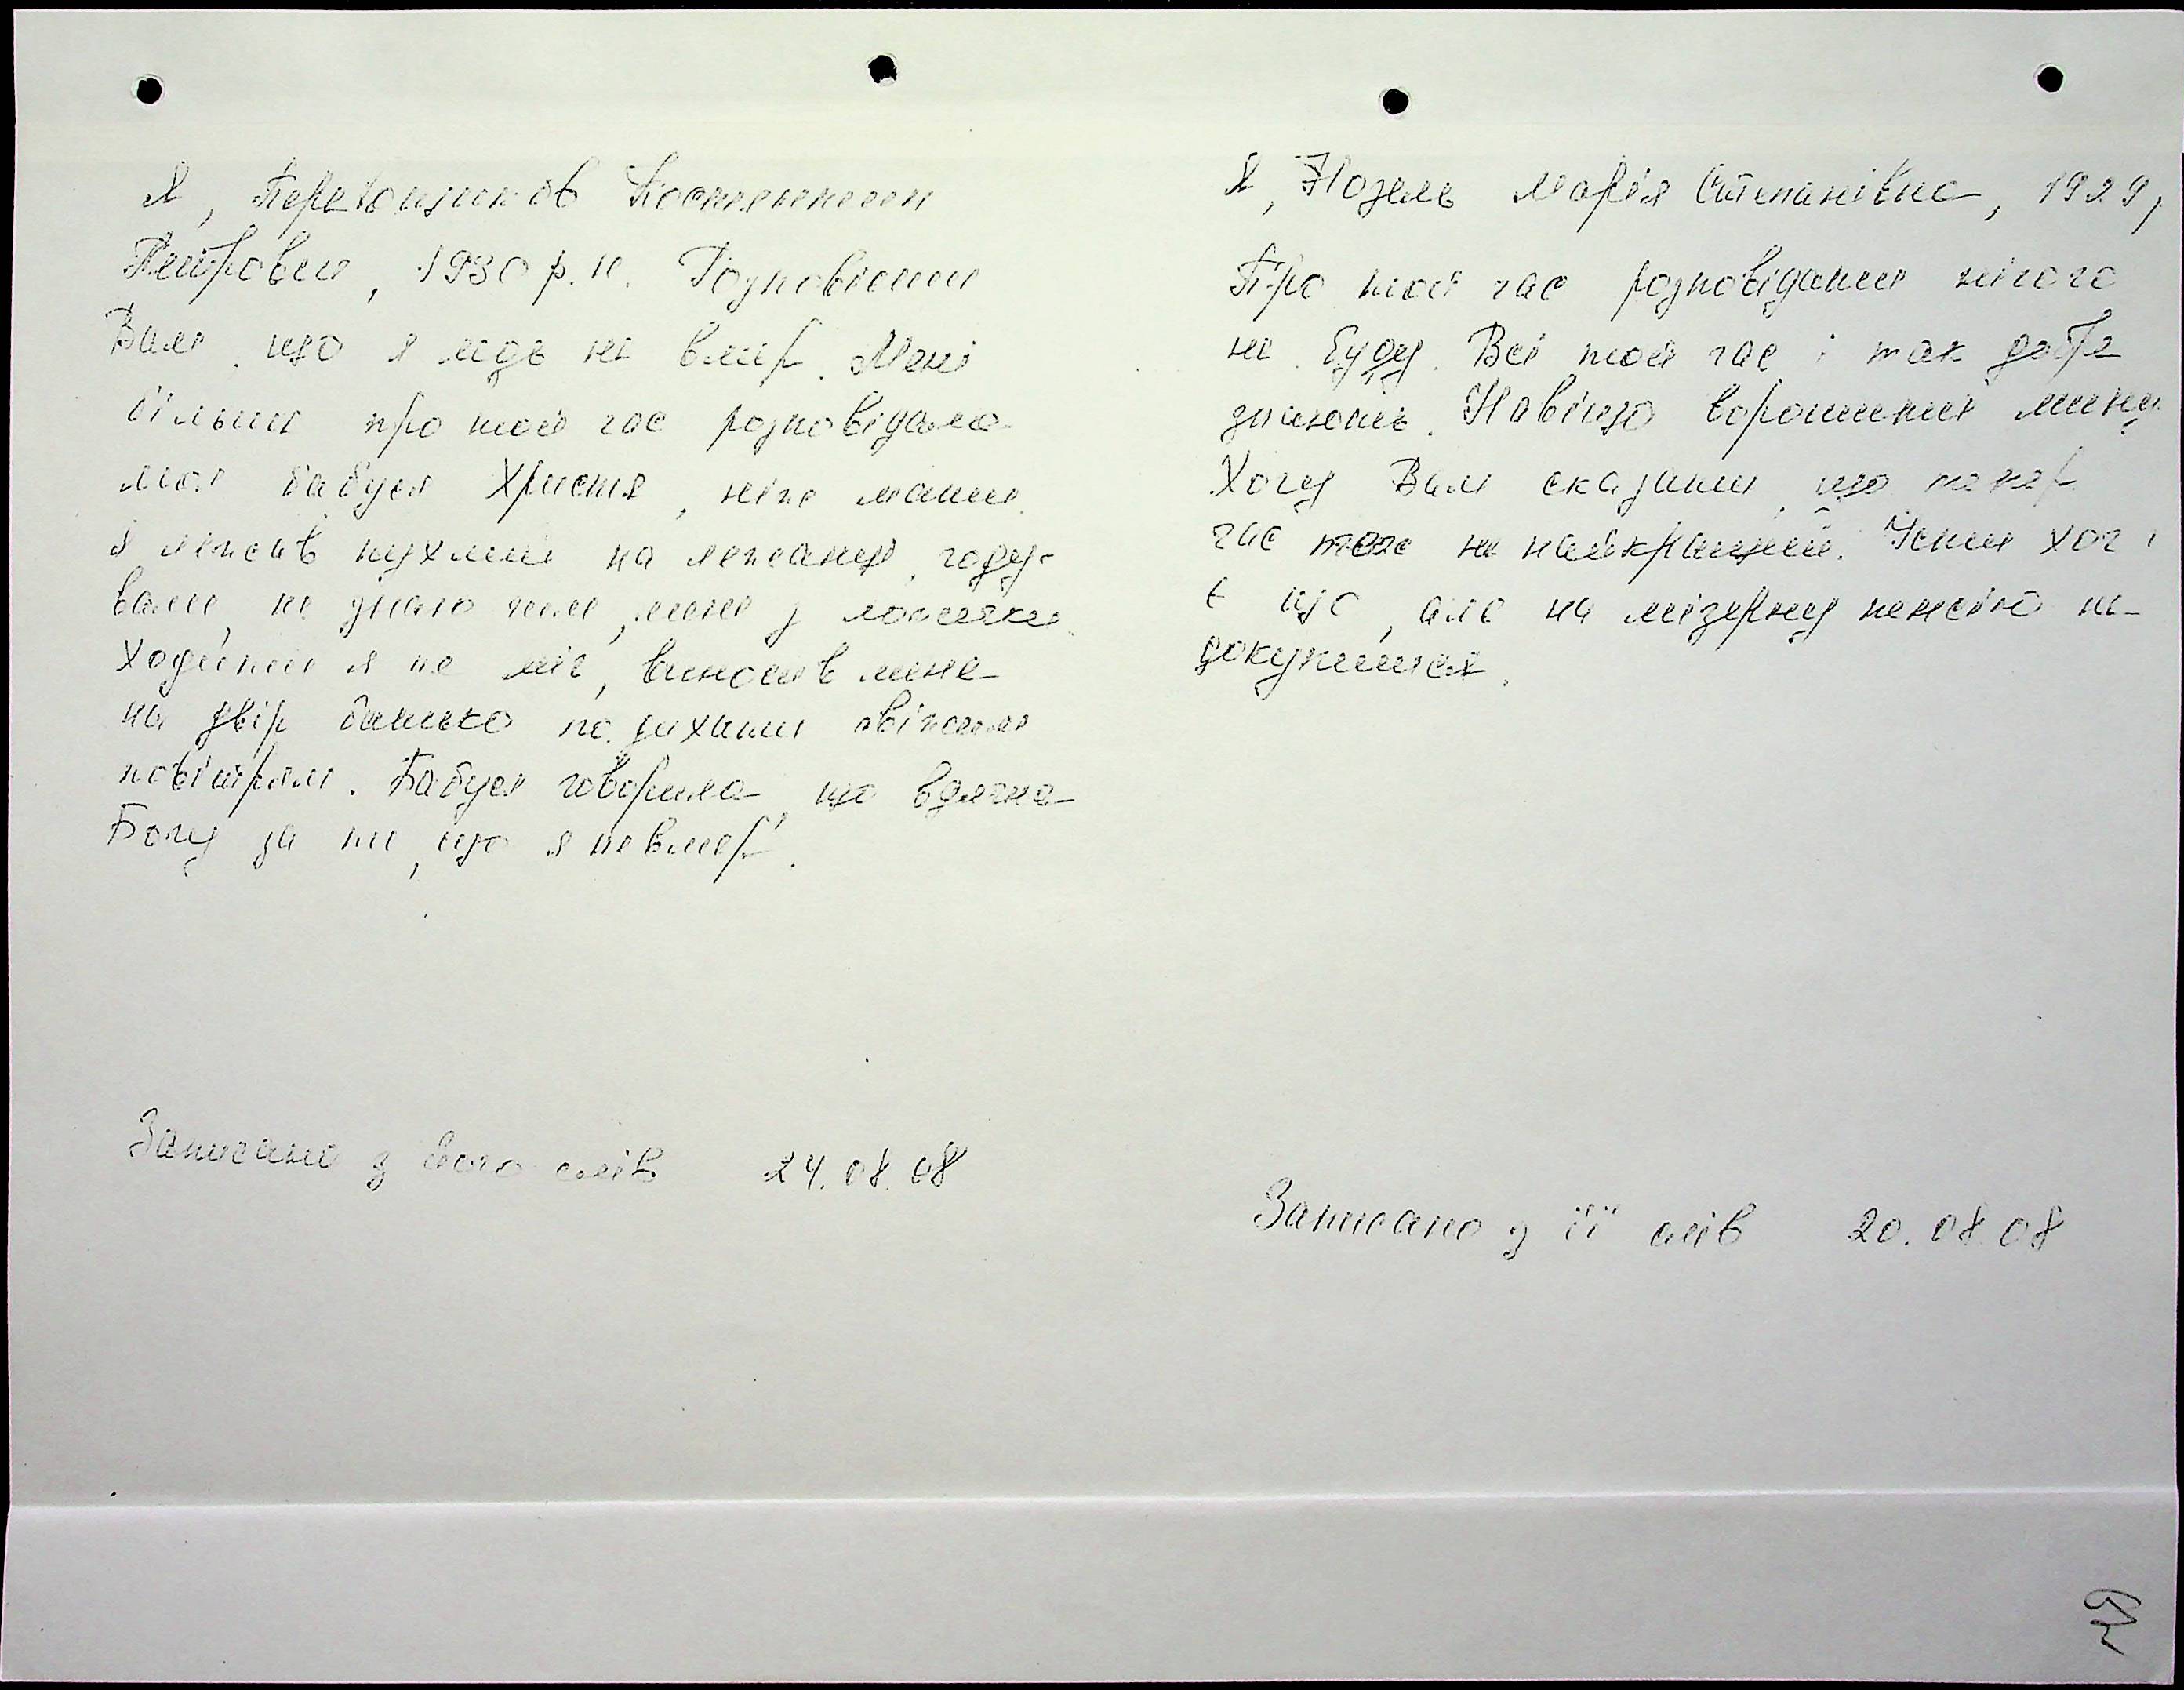 Я, Перевощиков Костянтин
Петрович, 1930 р.н. Розповісти
Вам, що я ледь не вмер. Мені
більш про той час розповідала
моя бабуся Христя, ніж мати.
Я лежав пухлий на лежанці, году-
вали, не знаю чим, мене з ложечки.
Ходити я не міг, виносив мене
на двір батько подихати свіжим
повітрям. Бабуся говорила, що вдячна
Богу за те, що я не вмер.
Записано з його слів 24.08.08
Я, Нозель Марія Степанівна, 1929,
Про той час розповідати нічого
не буду. Всі той час і так добре
знають. Навіщо ворошити мину
Хочу Вам сказати, що тепер
час теж не найкращий. Їсти хоч і
є що, але на мізерну пенсію не
докупишся.
Записано з її слів 20.08.08